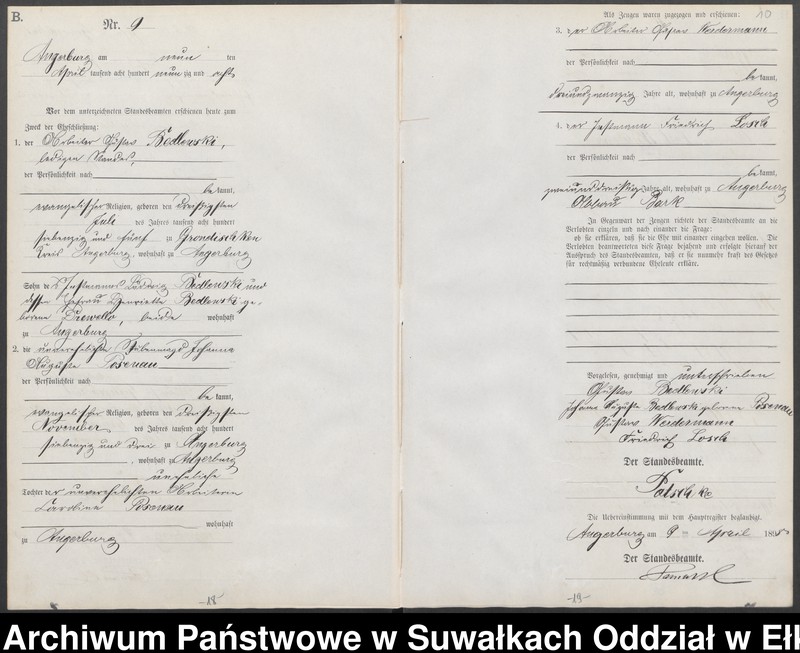 B.
Nr. 9
Angerburg am neun ten
April tausend acht hundert neun zig und acht
Vor dem unterzeichneten Standesbeamten erschienen heute zum
Zweck der Eheschließung:
1. der Arbeiter Gustav Bedlewski,
ledigen Standes,
der Persönlichkeit nach
be kannt,
evangelischer Religion, geboren den dreißigsten
Juli des Jahres tausend acht hundert
siebenzig und fünf zu Grondischken
Kreis Angerburg, wohnhaft zu Angerburg
Sohn des Instmanns Ludwig Bedlewski und
dessen Ehefrau Henriette Bedlewski ge-
borene Drewello, beide wohnhaft
zu Angerburg
2. die unverehelichte Stubenmagd Johanna
Auguste Posenau
der Persönlichkeit nach
be kannt,
evangelischer Religion, geboren den dreißigsten
November des Jahres tausend acht hundert
siebenzig und drei zu Angerburg
, wohnhaft zu Angerburg
uneheliche
Tochter der unverehelichten Arbeiterin
Caroline Posenau
wohnhaft
zu Angerburg
-18-
10
Als Zeugen waren zugezogen und erschienen:
3. der Arbeiter Gustav Weidermann
der Persönlichkeit nach
be kannt,
dreiundzwanzig Jahre alt, wohnhaft zu Angerburg
4. der Instmann Friedrich Losch
der Persönlichkeit nach
be kannt,
zweiunddreißig Jahre alt, wohnhaft zu Angerburg
Abbau Bark
In Gegenwart der Zeugen richtete der Standesbeamte an die
Verlobten einzeln und nach einander die Frage:
ob sie erklären, daß sie die Ehe mit einander eingehen wollen. Die
Verlobten beantworteten diese Frage bejahend und erfolgte hierauf der
Ausspruch des Standesbeamten, daß er sie nunmehr kraft des Gesetzes
für rechtmäßig verbundene Eheleute erkläre.
Vorgelesen, genehmigt und unterschrieben
Gustav Bedlewski
Johanne Auguste Bedlewski geborene Posenau
Gustav Weidermann
Friedrich Losch
Der Standesbeamte.
Die Uebereinstimmung mit dem Hauptregister beglaubigt.
Angerburg am 9 ten April 1898
Der Standesbeamte.
-19-
Archiwum Państwowe w Suwałkach Oddział w Ełk